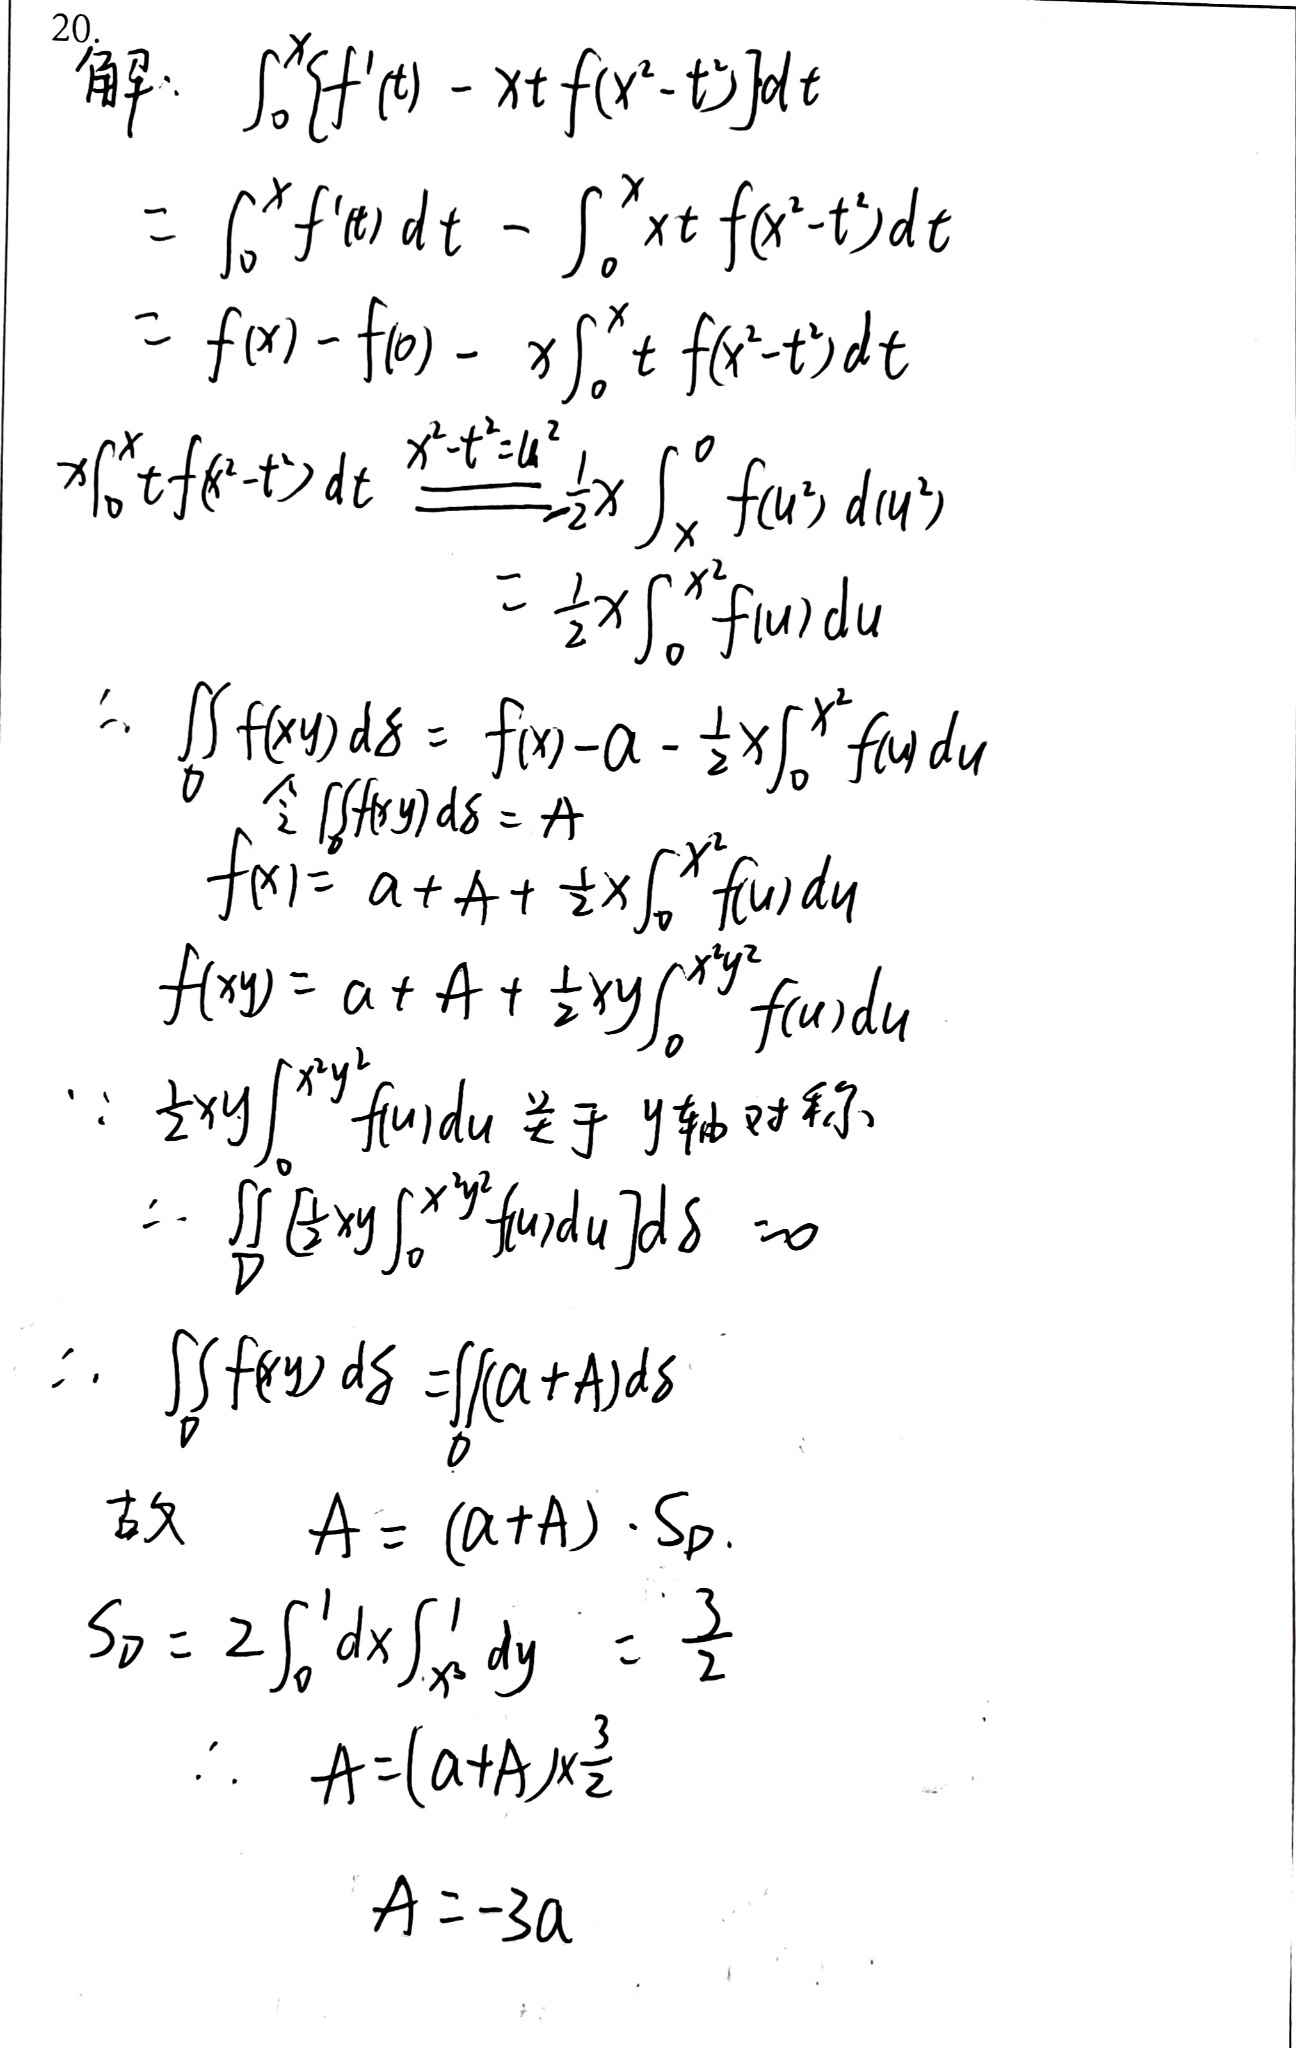 20.
解: ∫₀ˣ[f'(t) - xt f(x²-t²)]dt
= ∫₀ˣ f'(t) dt - ∫₀ˣ xt f(x²-t²)dt
= f(x) - f(0) - x∫₀ˣ t f(x²-t²)dt
x∫₀ˣ t f(x²-t²) dt \overset{x²-t²=u²}{=} -½x ∫ₓ⁰ f(u²) d(u²)
= ½x ∫₀^{x²} f(u) du
∴ ∬_D f(xy) dδ = f(x) - a - ½x∫₀^{x²} f(u) du
令 ∬_D f(xy) dδ = A
f(x) = a + A + ½x∫₀^{x²} f(u) du
f(xy) = a + A + ½xy∫₀^{x²y²} f(u) du
∵ ½xy∫₀^{x²y²} f(u) du 关于 y轴对称
∴ ∬_D [½xy∫₀^{x²y²} f(u) du] dδ =0
∴ ∬_D f(xy) dδ = ∬_D (a+A) dδ
故 A = (a+A) · S_D.
S_D = 2∫₀¹ dx ∫_{x³}¹ dy = 3/2
∴ A = (a+A) × 3/2
A = -3a